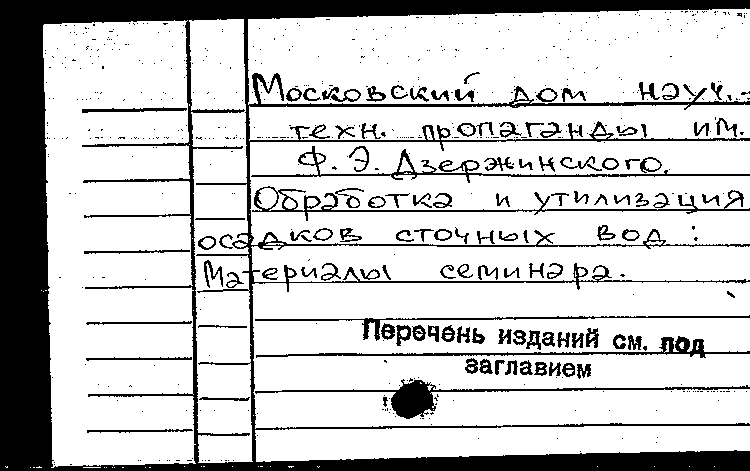 Московский дом науч.-
техн. пропаганды им.
Ф. Э. Дзержинского.
Обработка и утилизация
осадков сточных вод :
Материалы семинара.
Перечень изданий см. под
заглавием